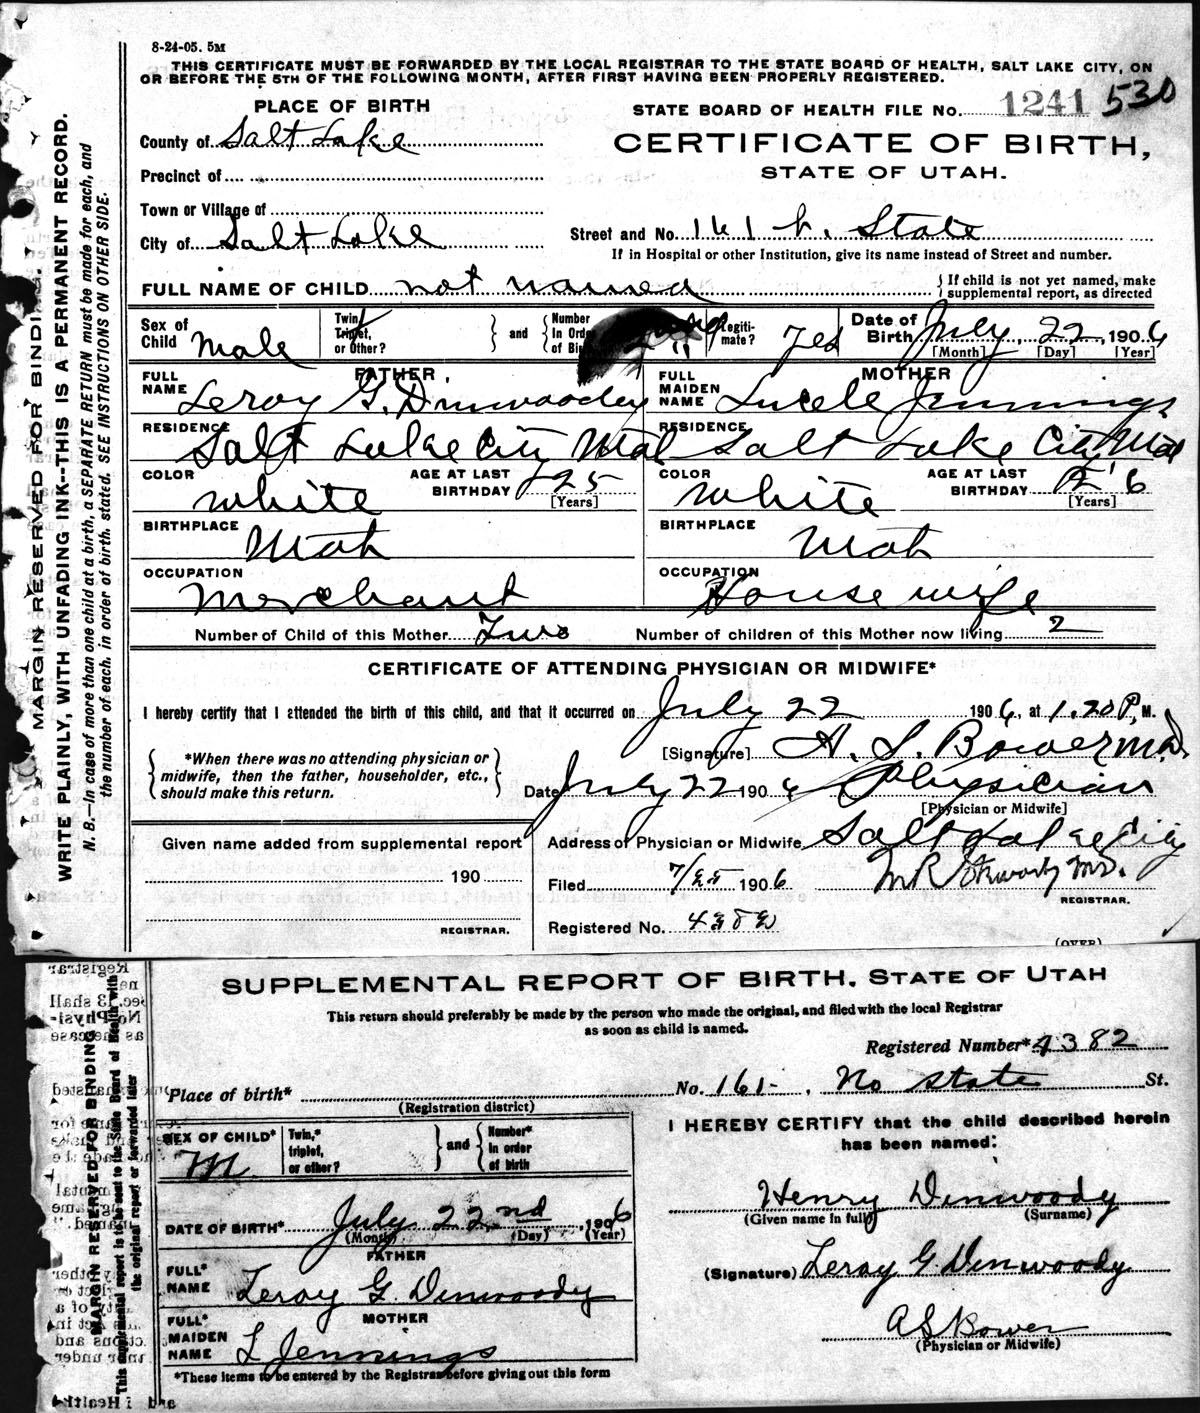 8-24-05. 5M
THIS CERTIFICATE MUST BE FORWARDED BY THE LOCAL REGISTRAR TO THE STATE BOARD OF HEALTH, SALT LAKE CITY, ON
OR BEFORE THE 5TH OF THE FOLLOWING MONTH, AFTER FIRST HAVING BEEN PROPERLY REGISTERED.
MARGIN RESERVED FOR BINDING.
WRITE PLAINLY, WITH UNFADING INK--THIS IS A PERMANENT RECORD.
N. B.--In case of more than one child at a birth, a SEPARATE RETURN must be made for each, and
the number of each, in order of birth, stated. SEE INSTRUCTIONS ON OTHER SIDE.
PLACE OF BIRTH
STATE BOARD OF HEALTH FILE No. 1241 530
County of Salt Lake
CERTIFICATE OF BIRTH,
STATE OF UTAH.
Precinct of
Town or Village of
City of Salt Lake
Street and No. 161 N. State
If in Hospital or other Institution, give its name instead of Street and number.
FULL NAME OF CHILD not named
If child is not yet named, make
supplemental report, as directed
Sex of Child Male
Twin, Triplet, or Other?
and
Number In Order of Birth
Legiti-mate? Yes
Date of Birth July 22, 1906
[Month] [Day] [Year]
FATHER
MOTHER
FULL NAME Leroy G. Dinwoodey
FULL MAIDEN NAME Lucele Jennings
RESIDENCE Salt Lake City Utah
RESIDENCE Salt Lake City Utah
COLOR white AGE AT LAST BIRTHDAY 25 [Years]
COLOR white AGE AT LAST BIRTHDAY 26 [Years]
BIRTHPLACE Utah
BIRTHPLACE Utah
OCCUPATION Merchant
OCCUPATION House wife
Number of Child of this Mother Two Number of children of this Mother now living 2
CERTIFICATE OF ATTENDING PHYSICIAN OR MIDWIFE*
I hereby certify that I attended the birth of this child, and that it occurred on July 22 1906, at 1.20 P. M.
*When there was no attending physician or
midwife, then the father, householder, etc.,
should make this return.
[Signature] A. S. Bower M.D.
Date July 22 1906 Physician
[Physician or Midwife]
Given name added from supplemental report
190
REGISTRAR.
Address of Physician or Midwife Salt Lake City
Filed 7/25 1906
REGISTRAR.
Registered No. 4382
(OVER)
SUPPLEMENTAL REPORT OF BIRTH, STATE OF UTAH
This return should preferably be made by the person who made the original, and filed with the local Registrar
as soon as child is named.
MARGIN RESERVED FOR BINDING
This supplemental report is to be sent to the State Board of Health with
the original report or forwarded later
Registered Number* 4382
Place of birth*
(Registration district)
No. 161-, No state St.
SEX OF CHILD* M
Twin,* triplet, or other?
and
Number* in order of birth
DATE OF BIRTH* July 22nd, 1906
(Month) (Day) (Year)
FATHER
FULL* NAME Leroy G. Dinwoody
MOTHER
FULL* MAIDEN NAME L Jennings
*These items to be entered by the Registrar before giving out this form
I HEREBY CERTIFY that the child described herein
has been named:
Henry Dinwoody
(Given name in full) (Surname)
(Signature) Leroy G. Dinwoody
A S Bower
(Physician or Midwife)